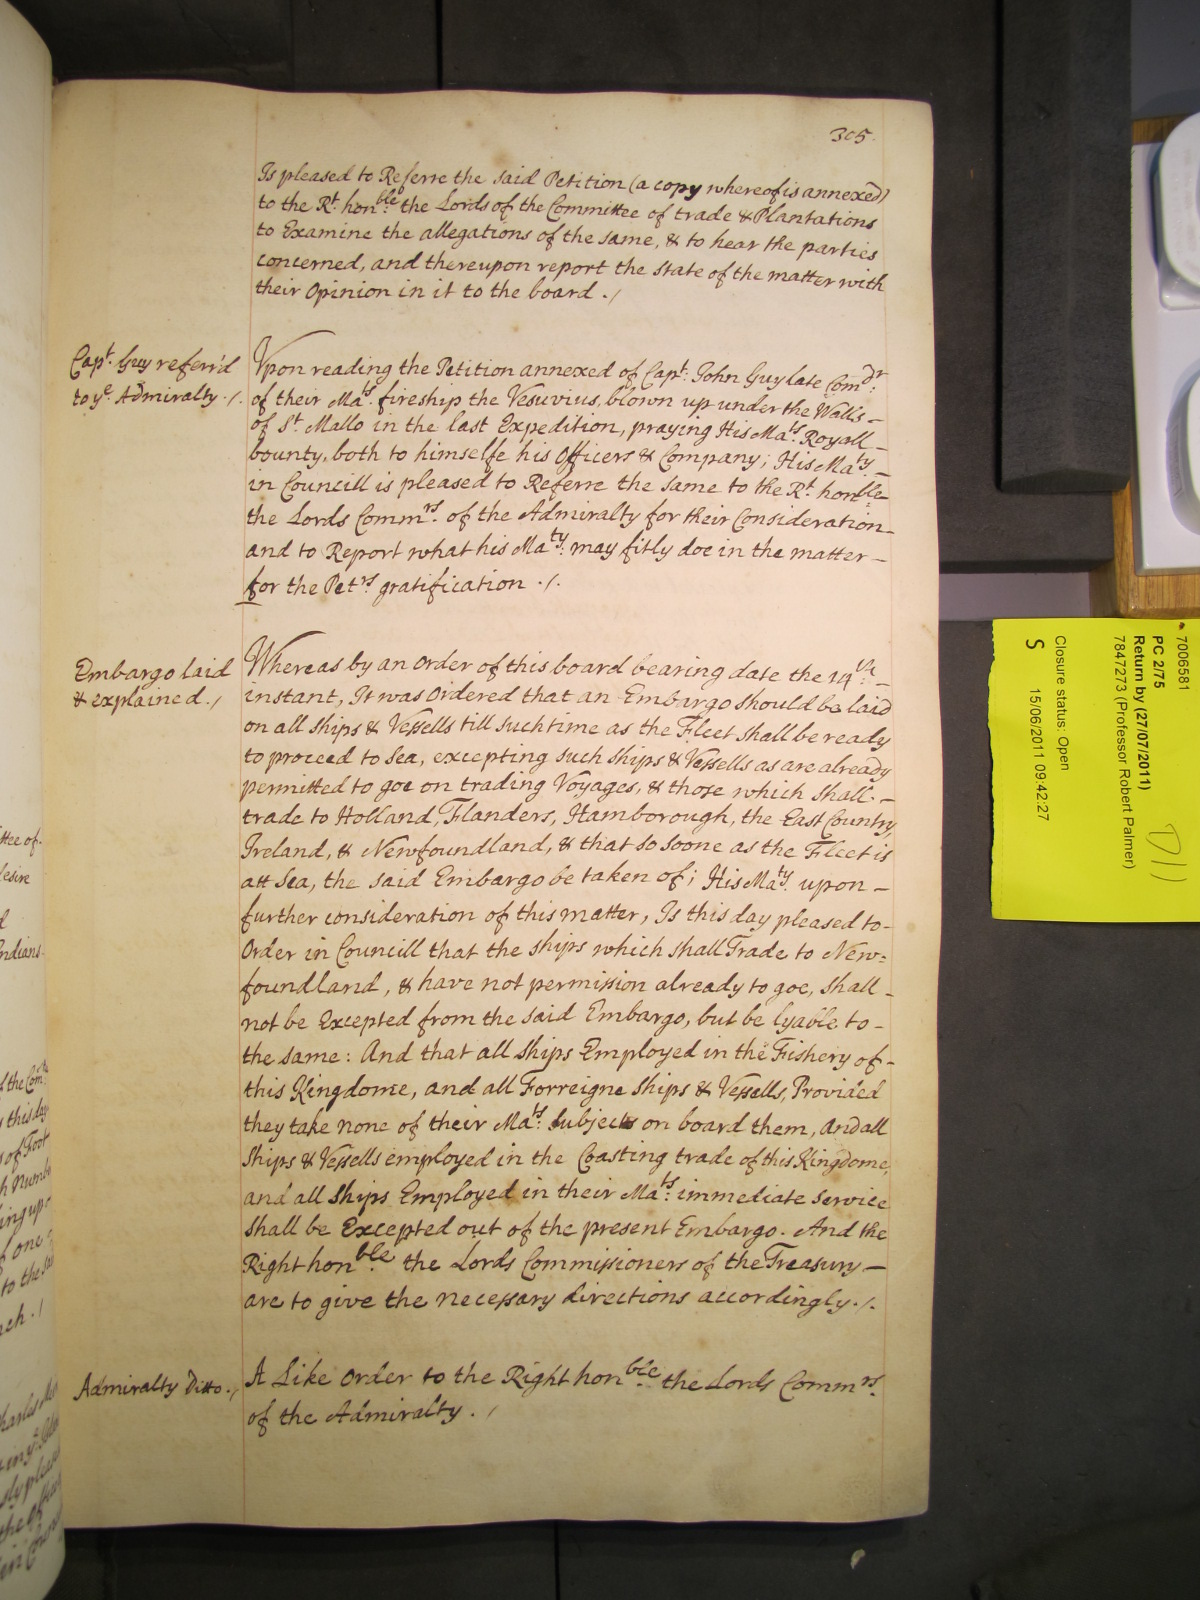 305.
Is pleased to Referre the said Petition (a copy whereof is annexed)
to the Rt. honble. the Lords of the Committee of trade & Plantations
to Examine the allegations of the same, & to hear the parties
concerned, and thereupon report the state of the matter with
their Opinion in it to the board ./
Capt. Guy referr'd
to ye Admiralty ./.
Vpon reading the Petition annexed of Capt. John Guy late Comdr.
of their Mats. fireship the Vesuvius, blown up under the Walls –
of St. Mallo in the last Expedition, praying His Mats. Royall –
bounty, both to himselfe his Officers & Company; His Maty. –
in Councill is pleased to Referre the same to the Rt. honble
the Lords Commrs. of the Admiralty for their Consideration –
and to Report what his Maty. may fitly doe in the matter –
for the Petrs gratification ./.
Embargo laid
& explained ./
Whereas by an Order of this board bearing date the 14th. –
instant, It was Ordered that an Embargo should be laid
on all ships & Vessells till such time as the Fleet shall be ready
to proceed to Sea, excepting such ships & Vessells as are already
permitted to goe on trading Voyages, & those which shall. –
trade to Holland, Flanders, Hamborough, the East Country,
Ireland, & Newfoundland, & that so soone as the Fleet is
att Sea, the said Embargo be taken of; His Maty. upon –
further consideration of this matter, Is this day pleased to –
Order in Councill that the ships which shall Trade to New=
foundland, & have not permission already to goe, shall –
not be Excepted from the said Embargo, but be lyable to –
the same: And that all ships Employed in the Fishery of –
this Kingdome, and all Forreigne ships & Vessells, Provided
they take none of their Mats. Subjects on board them, And all
ships & Vessells employed in the Coasting trade of this Kingdome,
and all ships Employed in their Mats. immediate service
shall be Excepted out of the present Embargo. And the
Right honble. the Lords Commissioners of the Treasury –
are to give the necessary directions accordingly ./.
Admiralty Ditto ./
A Like Order to the Right honble. the Lords Commrs.
of the Admiralty ./
ttee of
desire
ndians.
of the Comtt
this day
of Foot
h Numbe
ing up
of one
to the
ach ./
harles
7006581
PC 2/75
Return by (27/07/2011)
7847273 (Professor Robert Palmer)
D11
Closure status: Open
S 15/06/2011 09:42:27